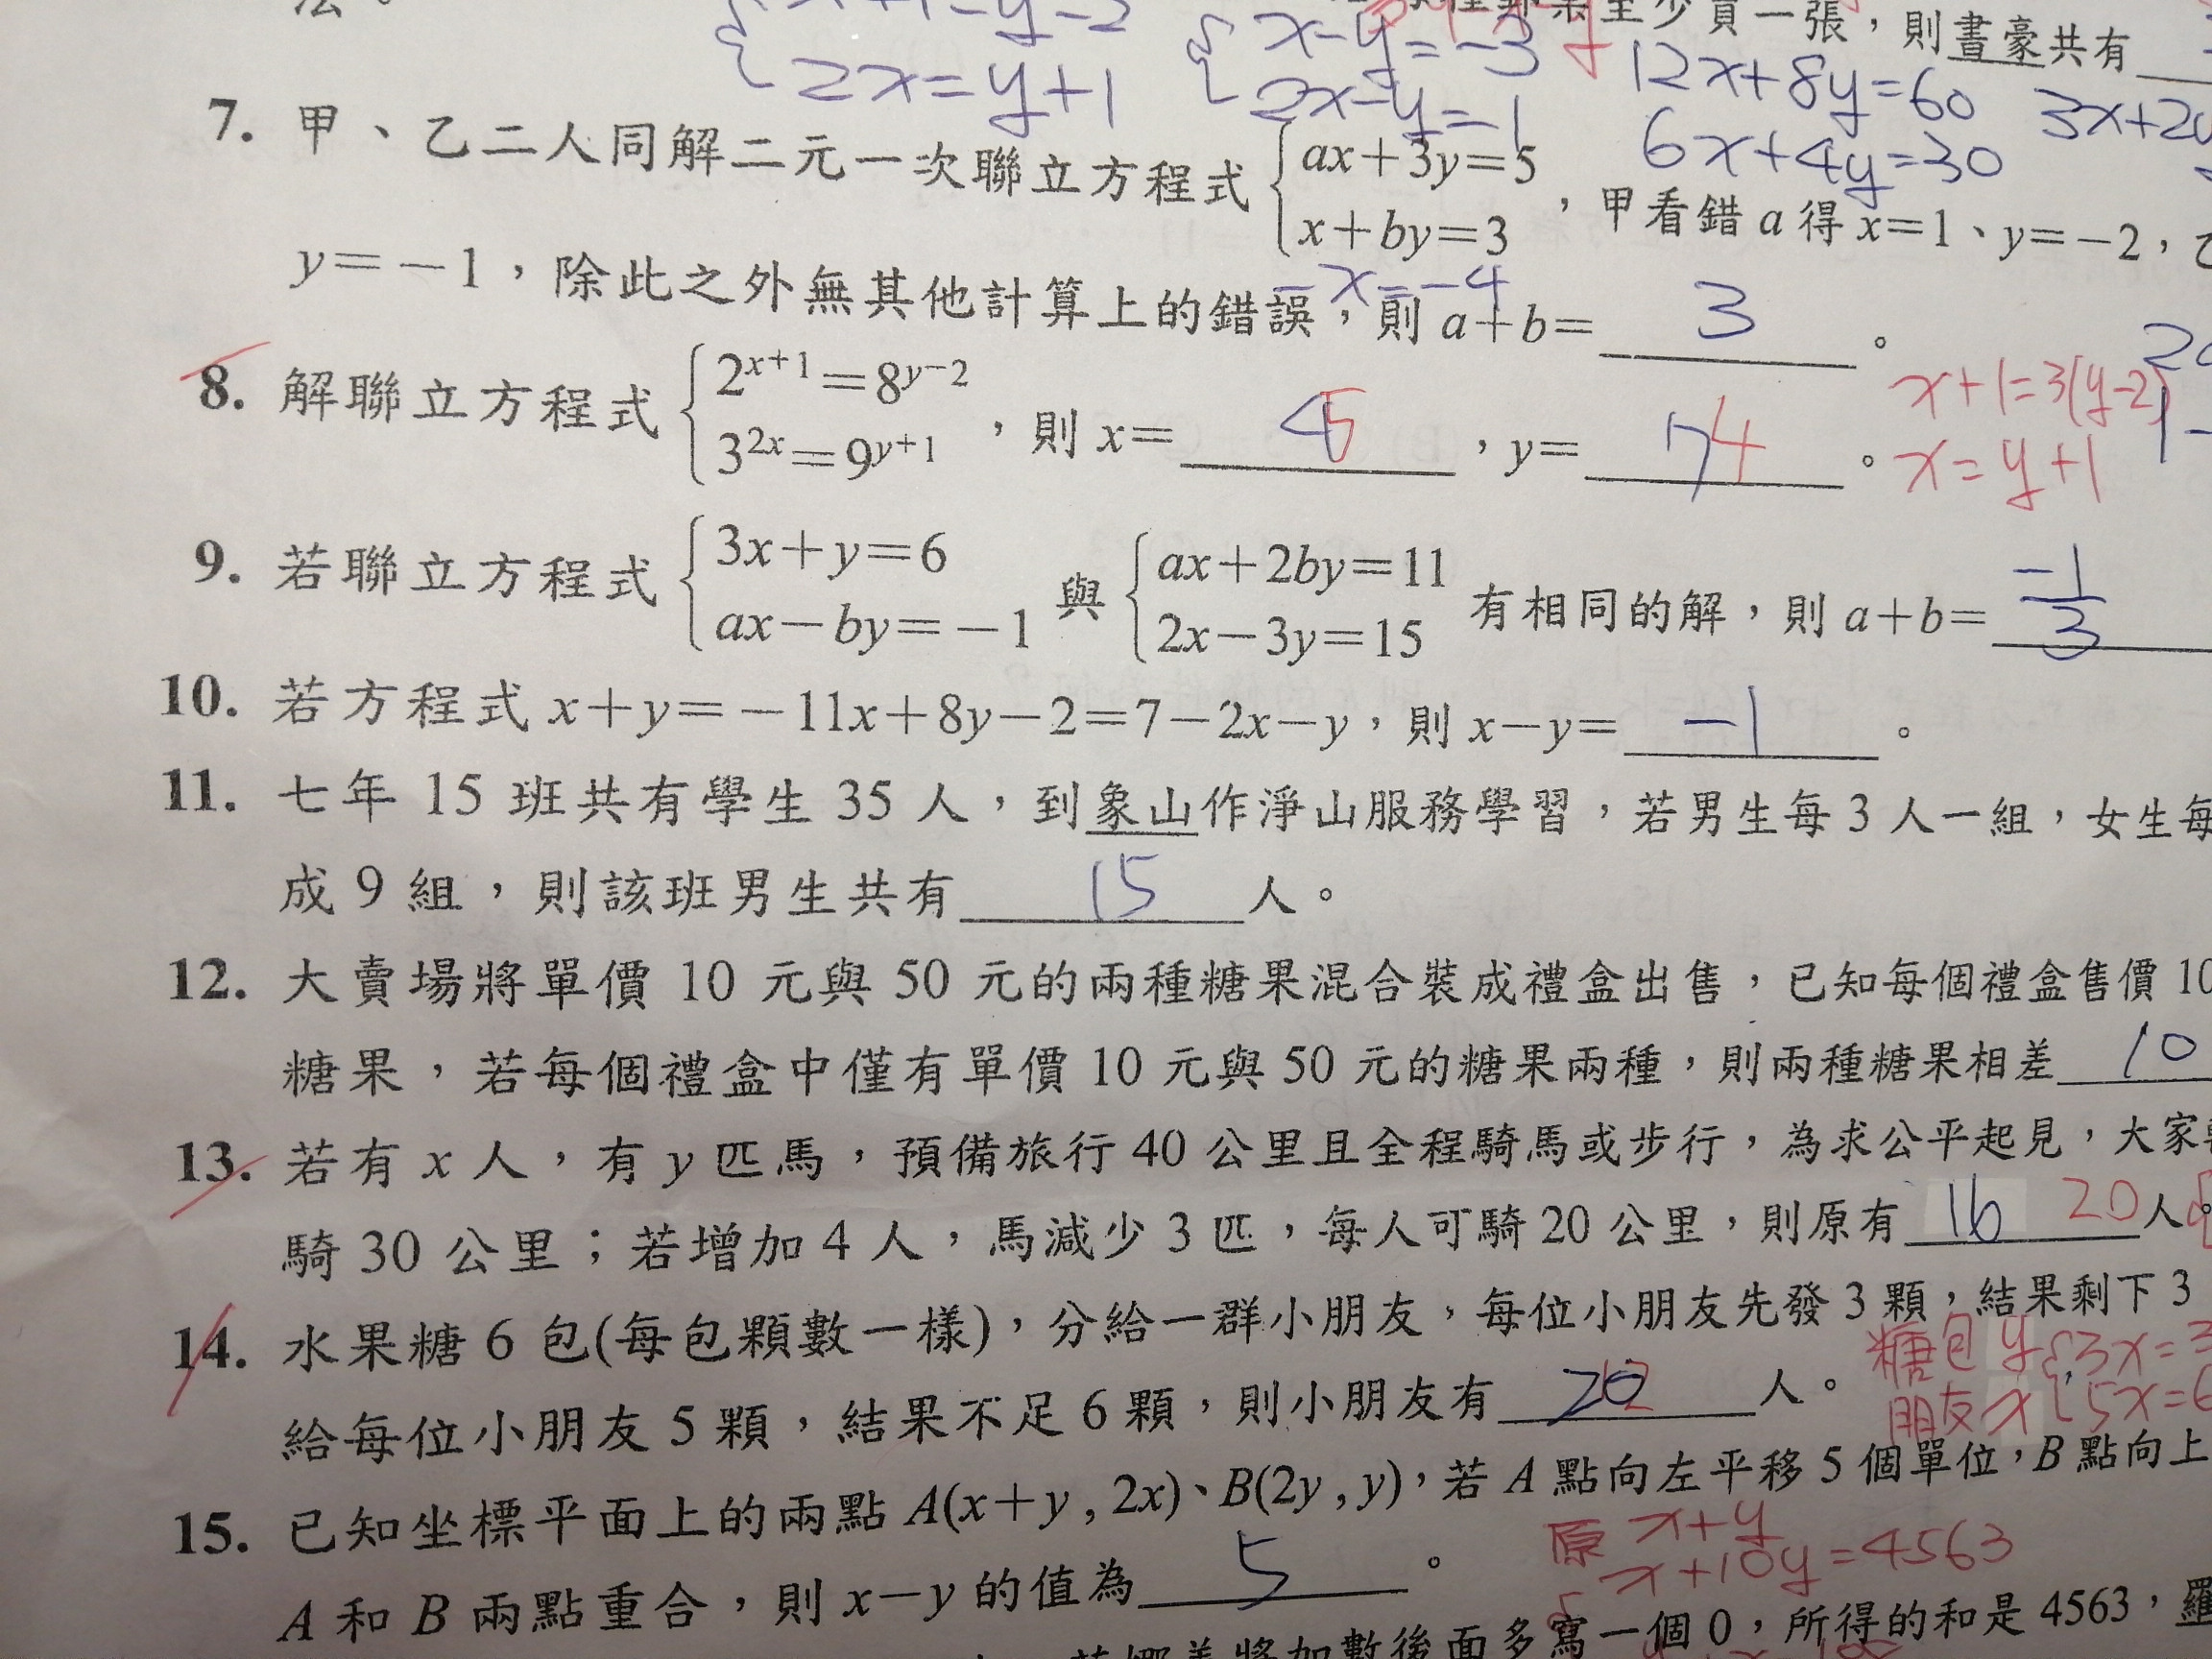 法。
x+1=y-2
2x=y+1
x-y=-3
2x-y=1
-x=-4
至少買一張，則書豪共有
12x+8y=60
6x+4y=30
3x+2y
7. 甲、乙二人同解二元一次聯立方程式{ax+3y=5 x+by=3，甲看錯 a 得 x=1、y=-2，乙
y=-1，除此之外無其他計算上的錯誤，則 a+b= 3 。
8. 解聯立方程式{2^{x+1}=8^{y-2} 3^{2x}=9^{y+1}，則 x= 4 5 ，y= 7 4 。
x+1=3(y-2)
x=y+1
9. 若聯立方程式{3x+y=6 ax-by=-1 與{ax+2by=11 2x-3y=15 有相同的解，則 a+b= -1/3
10. 若方程式 x+y=-11x+8y-2=7-2x-y，則 x-y= -1 。
11. 七年 15 班共有學生 35 人，到象山作淨山服務學習，若男生每 3 人一組，女生每
成 9 組，則該班男生共有 15 人。
12. 大賣場將單價 10 元與 50 元的兩種糖果混合裝成禮盒出售，已知每個禮盒售價 10
糖果，若每個禮盒中僅有單價 10 元與 50 元的糖果兩種，則兩種糖果相差 10
13. 若有 x 人，有 y 匹馬，預備旅行 40 公里且全程騎馬或步行，為求公平起見，大家
騎 30 公里；若增加 4 人，馬減少 3 匹，每人可騎 20 公里，則原有 16 20 人。
14. 水果糖 6 包(每包顆數一樣)，分給一群小朋友，每位小朋友先發 3 顆，結果剩下 3
給每位小朋友 5 顆，結果不足 6 顆，則小朋友有 20 人。
糖包 y {3x=3
朋友 x {5x=6
15. 已知坐標平面上的兩點 A(x+y , 2x)、B(2y , y)，若 A 點向左平移 5 個單位，B 點向上
A 和 B 兩點重合，則 x-y 的值為 5 。
原 x+y
x+10y=4563
將加數後面多寫一個 0，所得的和是 4563，羅